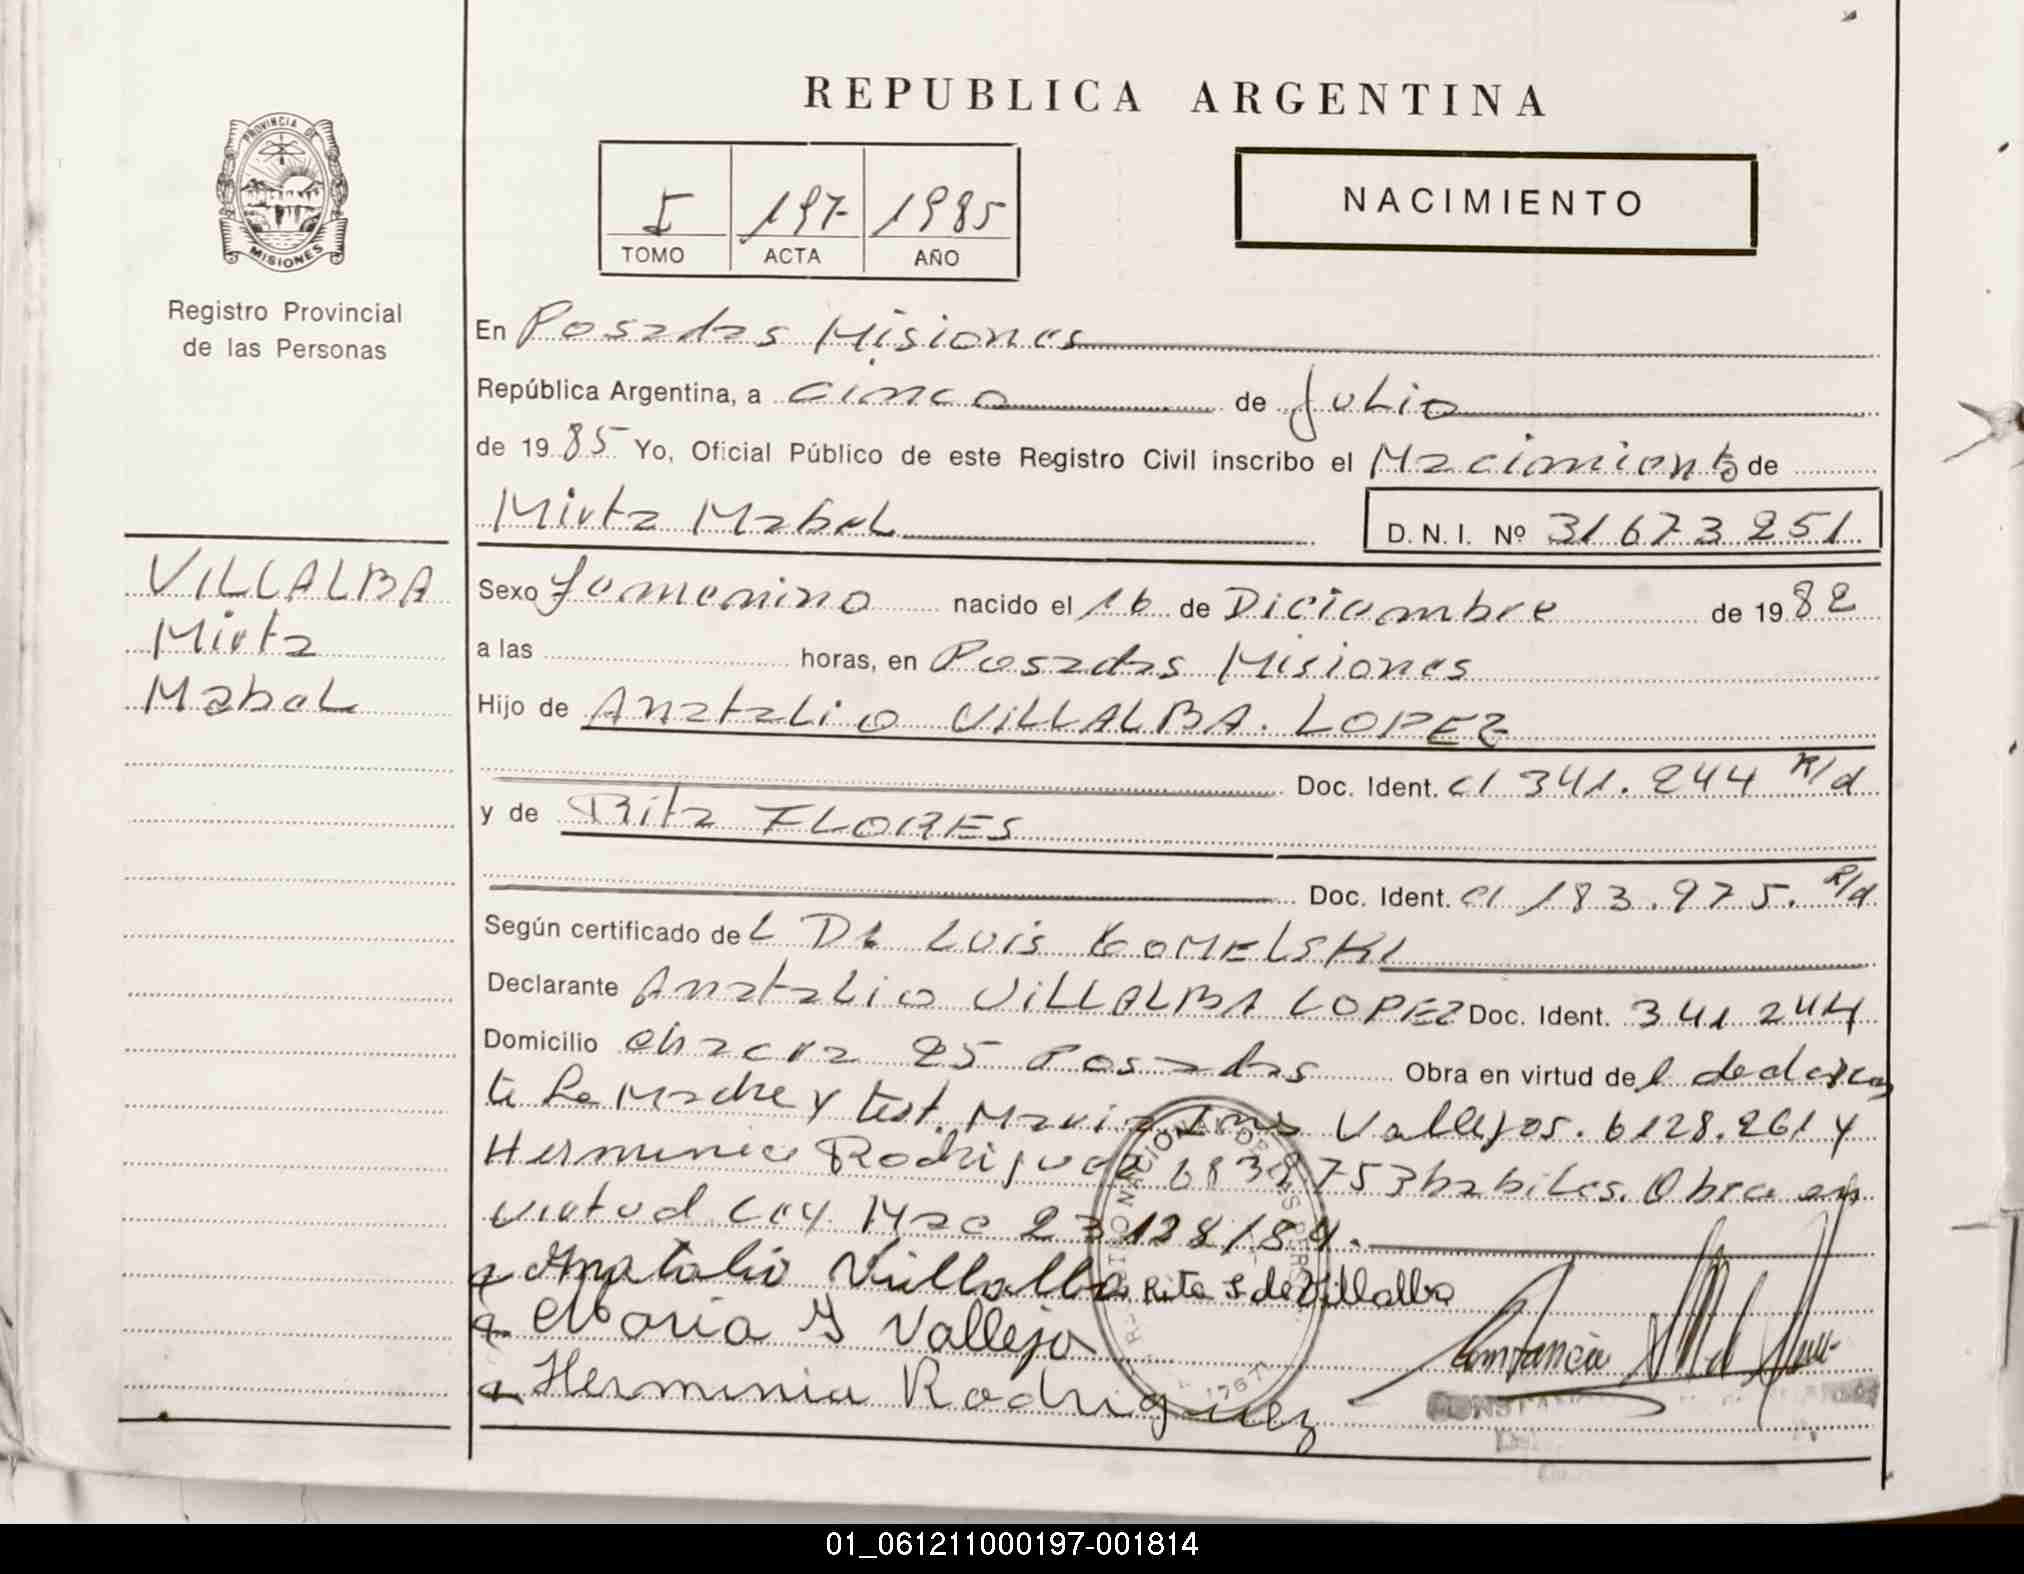 REPUBLICA ARGENTINA
PROVINCIA DE
MISIONES
Registro Provincial
de las Personas
I 197 1985
TOMO ACTA AÑO
NACIMIENTO
En Posadas Misiones
República Argentina, a cinco de Julio
de 1985 Yo, Oficial Público de este Registro Civil inscribo el Nacimiento de
Mirta Mabel D.N.I. Nº 31673251
VILLALBA
Mirta
Mabel
Sexo Femenino nacido el 16 de Diciembre de 1982
a las horas, en Posadas Misiones
Hijo de Anatalio VILLALBA. LOPEZ
Doc. Ident. CI 341.244 R/d
y de Rita FLORES
Doc. Ident. CI 183.975. R/d
Según certificado del Dr Luis
Declarante Anatalio VILLALBA LOPEZ Doc. Ident. 341244
Domicilio chacra 25 Posadas Obra en virtud del declaran
te La Madre y test. Maria Vallejos. 6128.261 y
Herminia Rodriguez 753 habiles. Obra en
virtud Ley Nac 23128/84.
Anatalio Villalba Rita F de Villalba
Maria Y Vallejo
Herminia Rodriguez
01_061211000197-001814